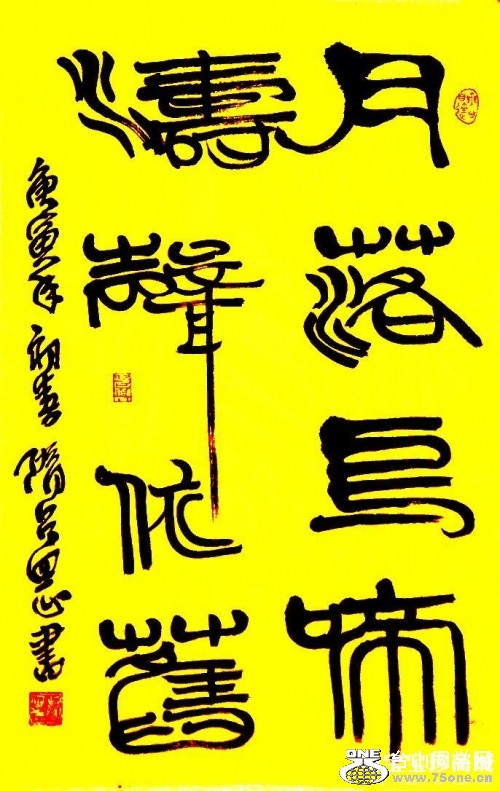 月落烏啼
濤聲依舊
庚寅年初春隋書
ONE
www.75one.cn